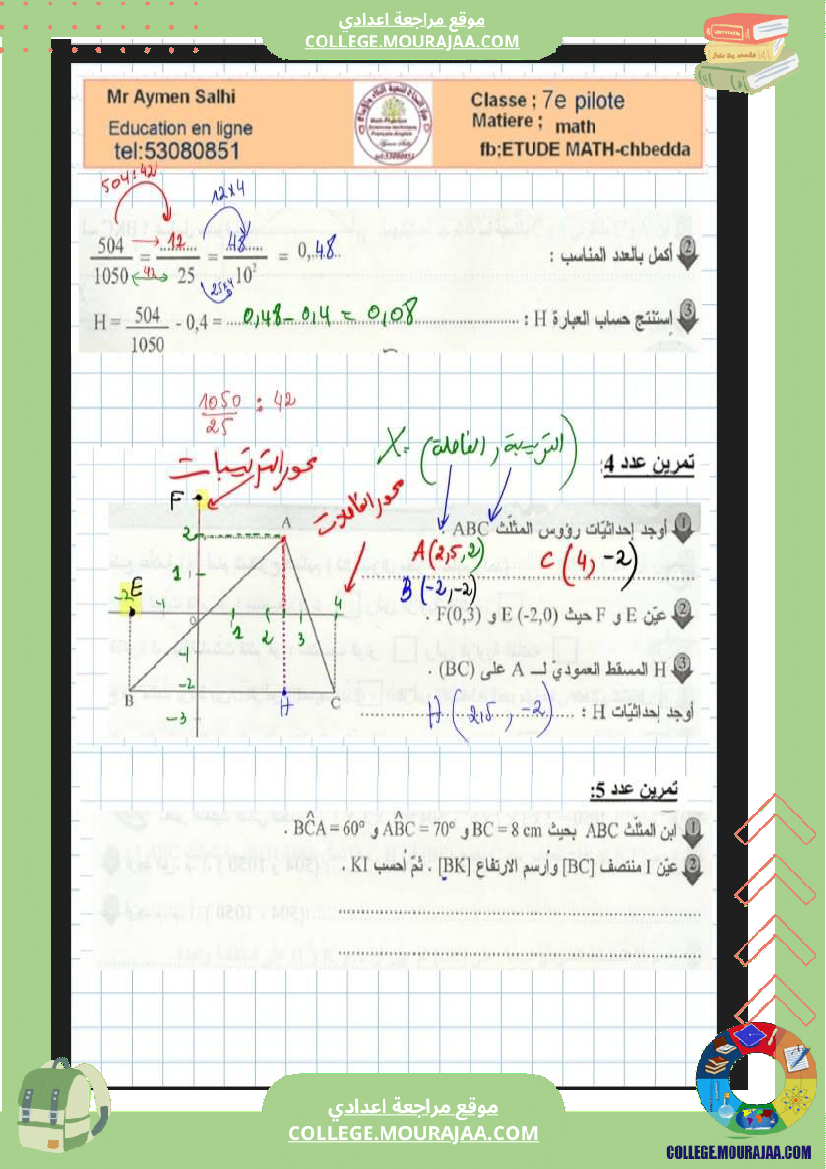 موقع مراجعة اعدادي
COLLEGE.MOURAJAA.COM
Mr Aymen Salhi
Education en ligne
tel:53080851
Classe ; 7e pilote
Matiere ; math
fb;ETUDE MATH-chbedda
504:42
12x4
2 أكمل بالعدد المناسب : 504/1050 = 12/25 = 48/10² = 0,48
42
25x4
3 إستنتج حساب العبارة H : H = 504/1050 - 0,4 = 0,48 - 0,4 = 0,08
1050/25 : 42
X = (الفاصلة , الترتيبة)
تمرين عدد 4:
محور الترتيبات
محور الفاصلات
1 أوجد إحداثيّات رؤوس المثلّث ABC .
A(2,5,2) C(4,-2)
B(-2,-2)
2 عيّن E و F حيث E (-2,0) و F(0,3) .
3 H المسقط العموديّ لـ A على (BC) .
أوجد إحداثيّات H : H(2,5 , -2)
F
A
2
1
E
-2 -1 0 1 2 3 4
-1
-2
-3
B H C
تمرين عدد 5:
1 ابن المثلث ABC بحيث BC = 8 cm و ABC = 70° و BCA = 60° .
2 عيّن I منتصف [BC] وأرسم الارتفاع [BK] . ثمّ احسب KI .
موقع مراجعة اعدادي
COLLEGE.MOURAJAA.COM
COLLEGE.MOURAJAA.COM